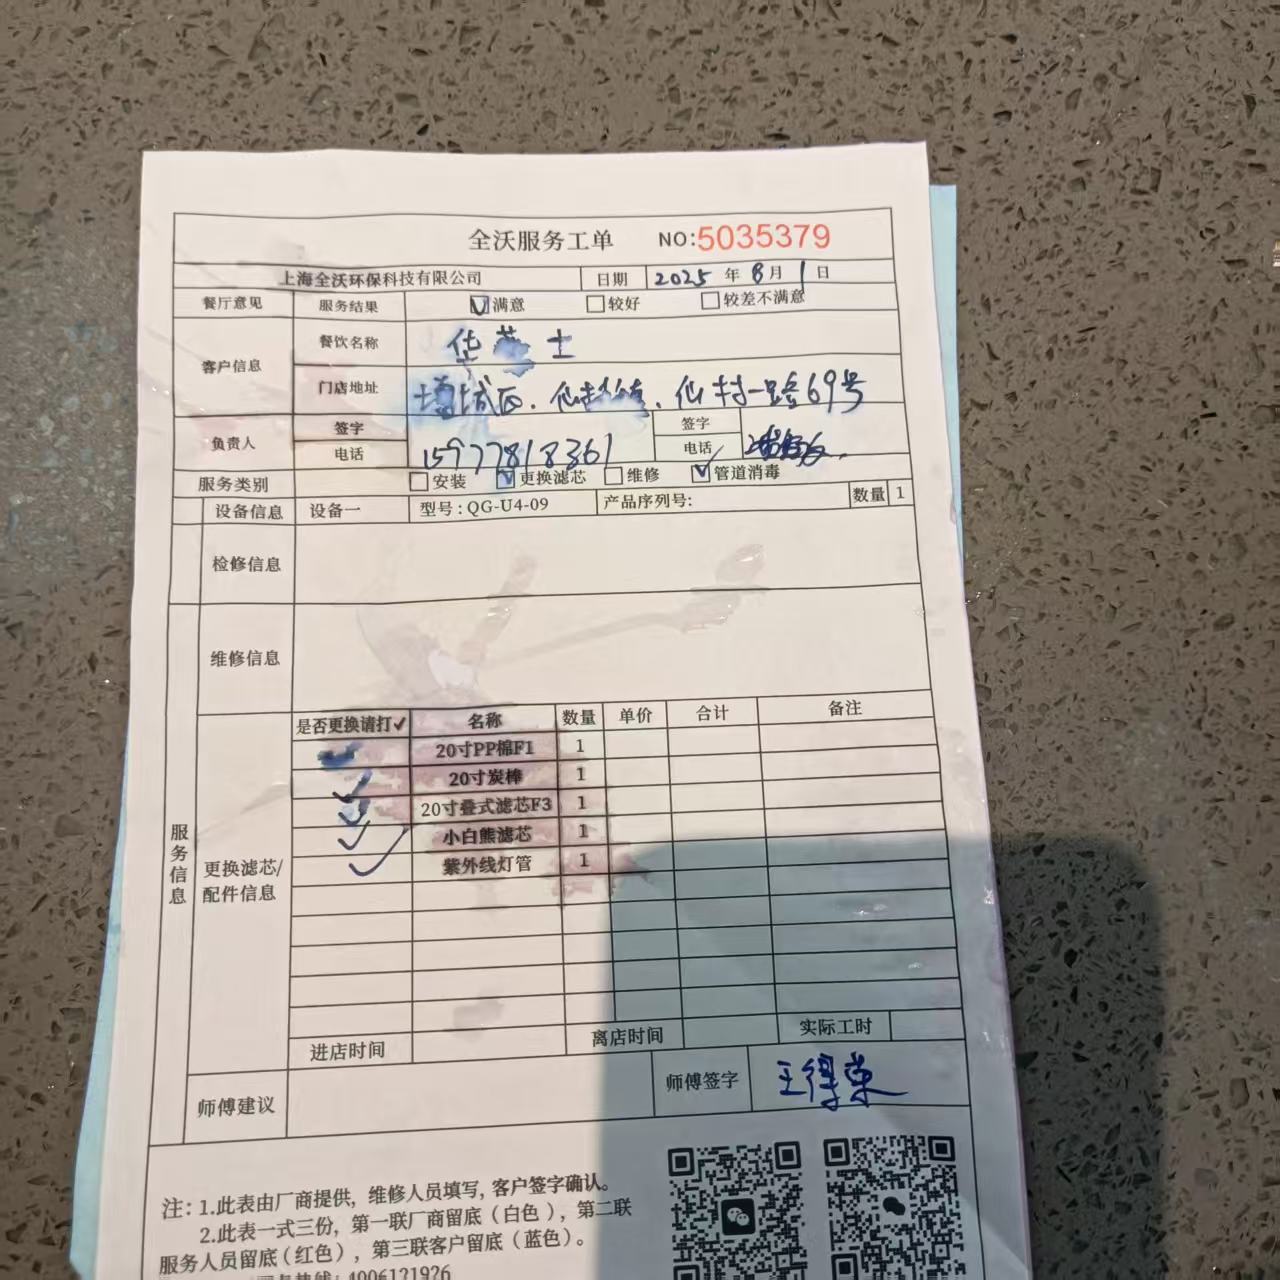 全沃服务工单 NO:5035379
上海全沃环保科技有限公司 日期 2025 年 8 月 1 日
餐厅意见 服务结果 满意 较好 较差不满意
客户信息 餐饮名称 华莱士
门店地址 增城区、仙村镇、仙村一路69号
负责人 签字 签字
电话 15977818361 电话
服务类别 安装 更换滤芯 维修 管道消毒
设备信息 设备一 型号:QG-U4-09 产品序列号: 数量 1
检修信息
维修信息
服务信息
更换滤芯/配件信息
是否更换请打✓ 名称 数量 单价 合计 备注
✓ 20寸PP棉F1 1
✓ 20寸炭棒 1
✓ 20寸叠式滤芯F3 1
✓ 小白熊滤芯 1
✓ 紫外线灯管 1
进店时间 离店时间 实际工时
师傅建议 师傅签字 王得荣
注:1.此表由厂商提供,维修人员填写,客户签字确认。
2.此表一式三份,第一联厂商留底(白色),第二联
服务人员留底(红色),第三联客户留底(蓝色)。
4006121926